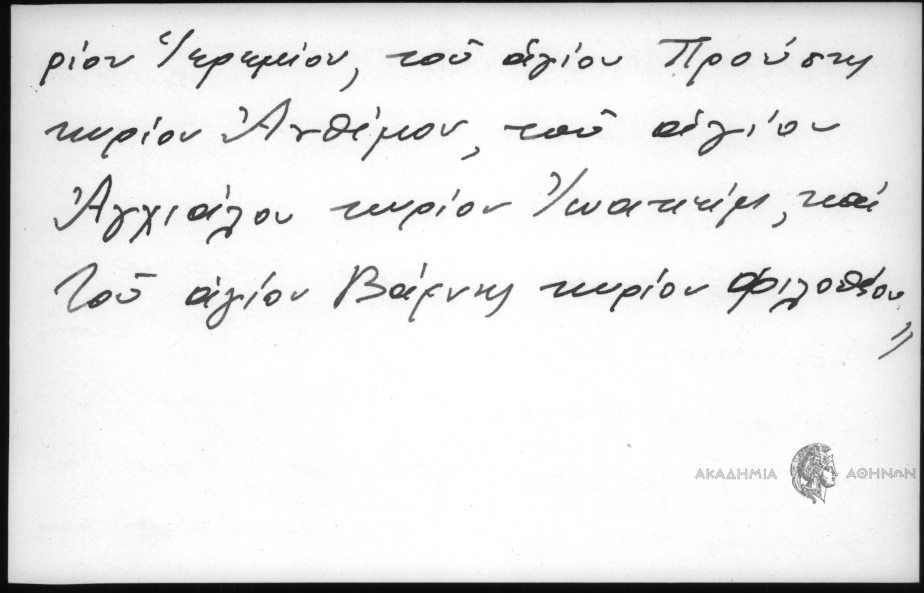 ρίου Ἱερεμίου, τοῦ ἁγίου Προύσης
κυρίου Ἀνθίμου, τοῦ ἁγίου
Ἀγχιάλου κυρίου Ἰωακείμ, καί
τοῦ ἁγίου Βάρνης κυρίου Φιλοθέου"
ΑΚΑΔΗΜΙΑ ΑΘΗΝΩΝ